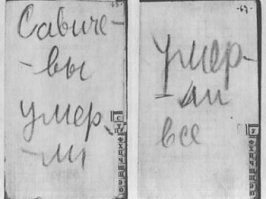 Савиче-
-вы
умер
-ли
умер-
-ли
все